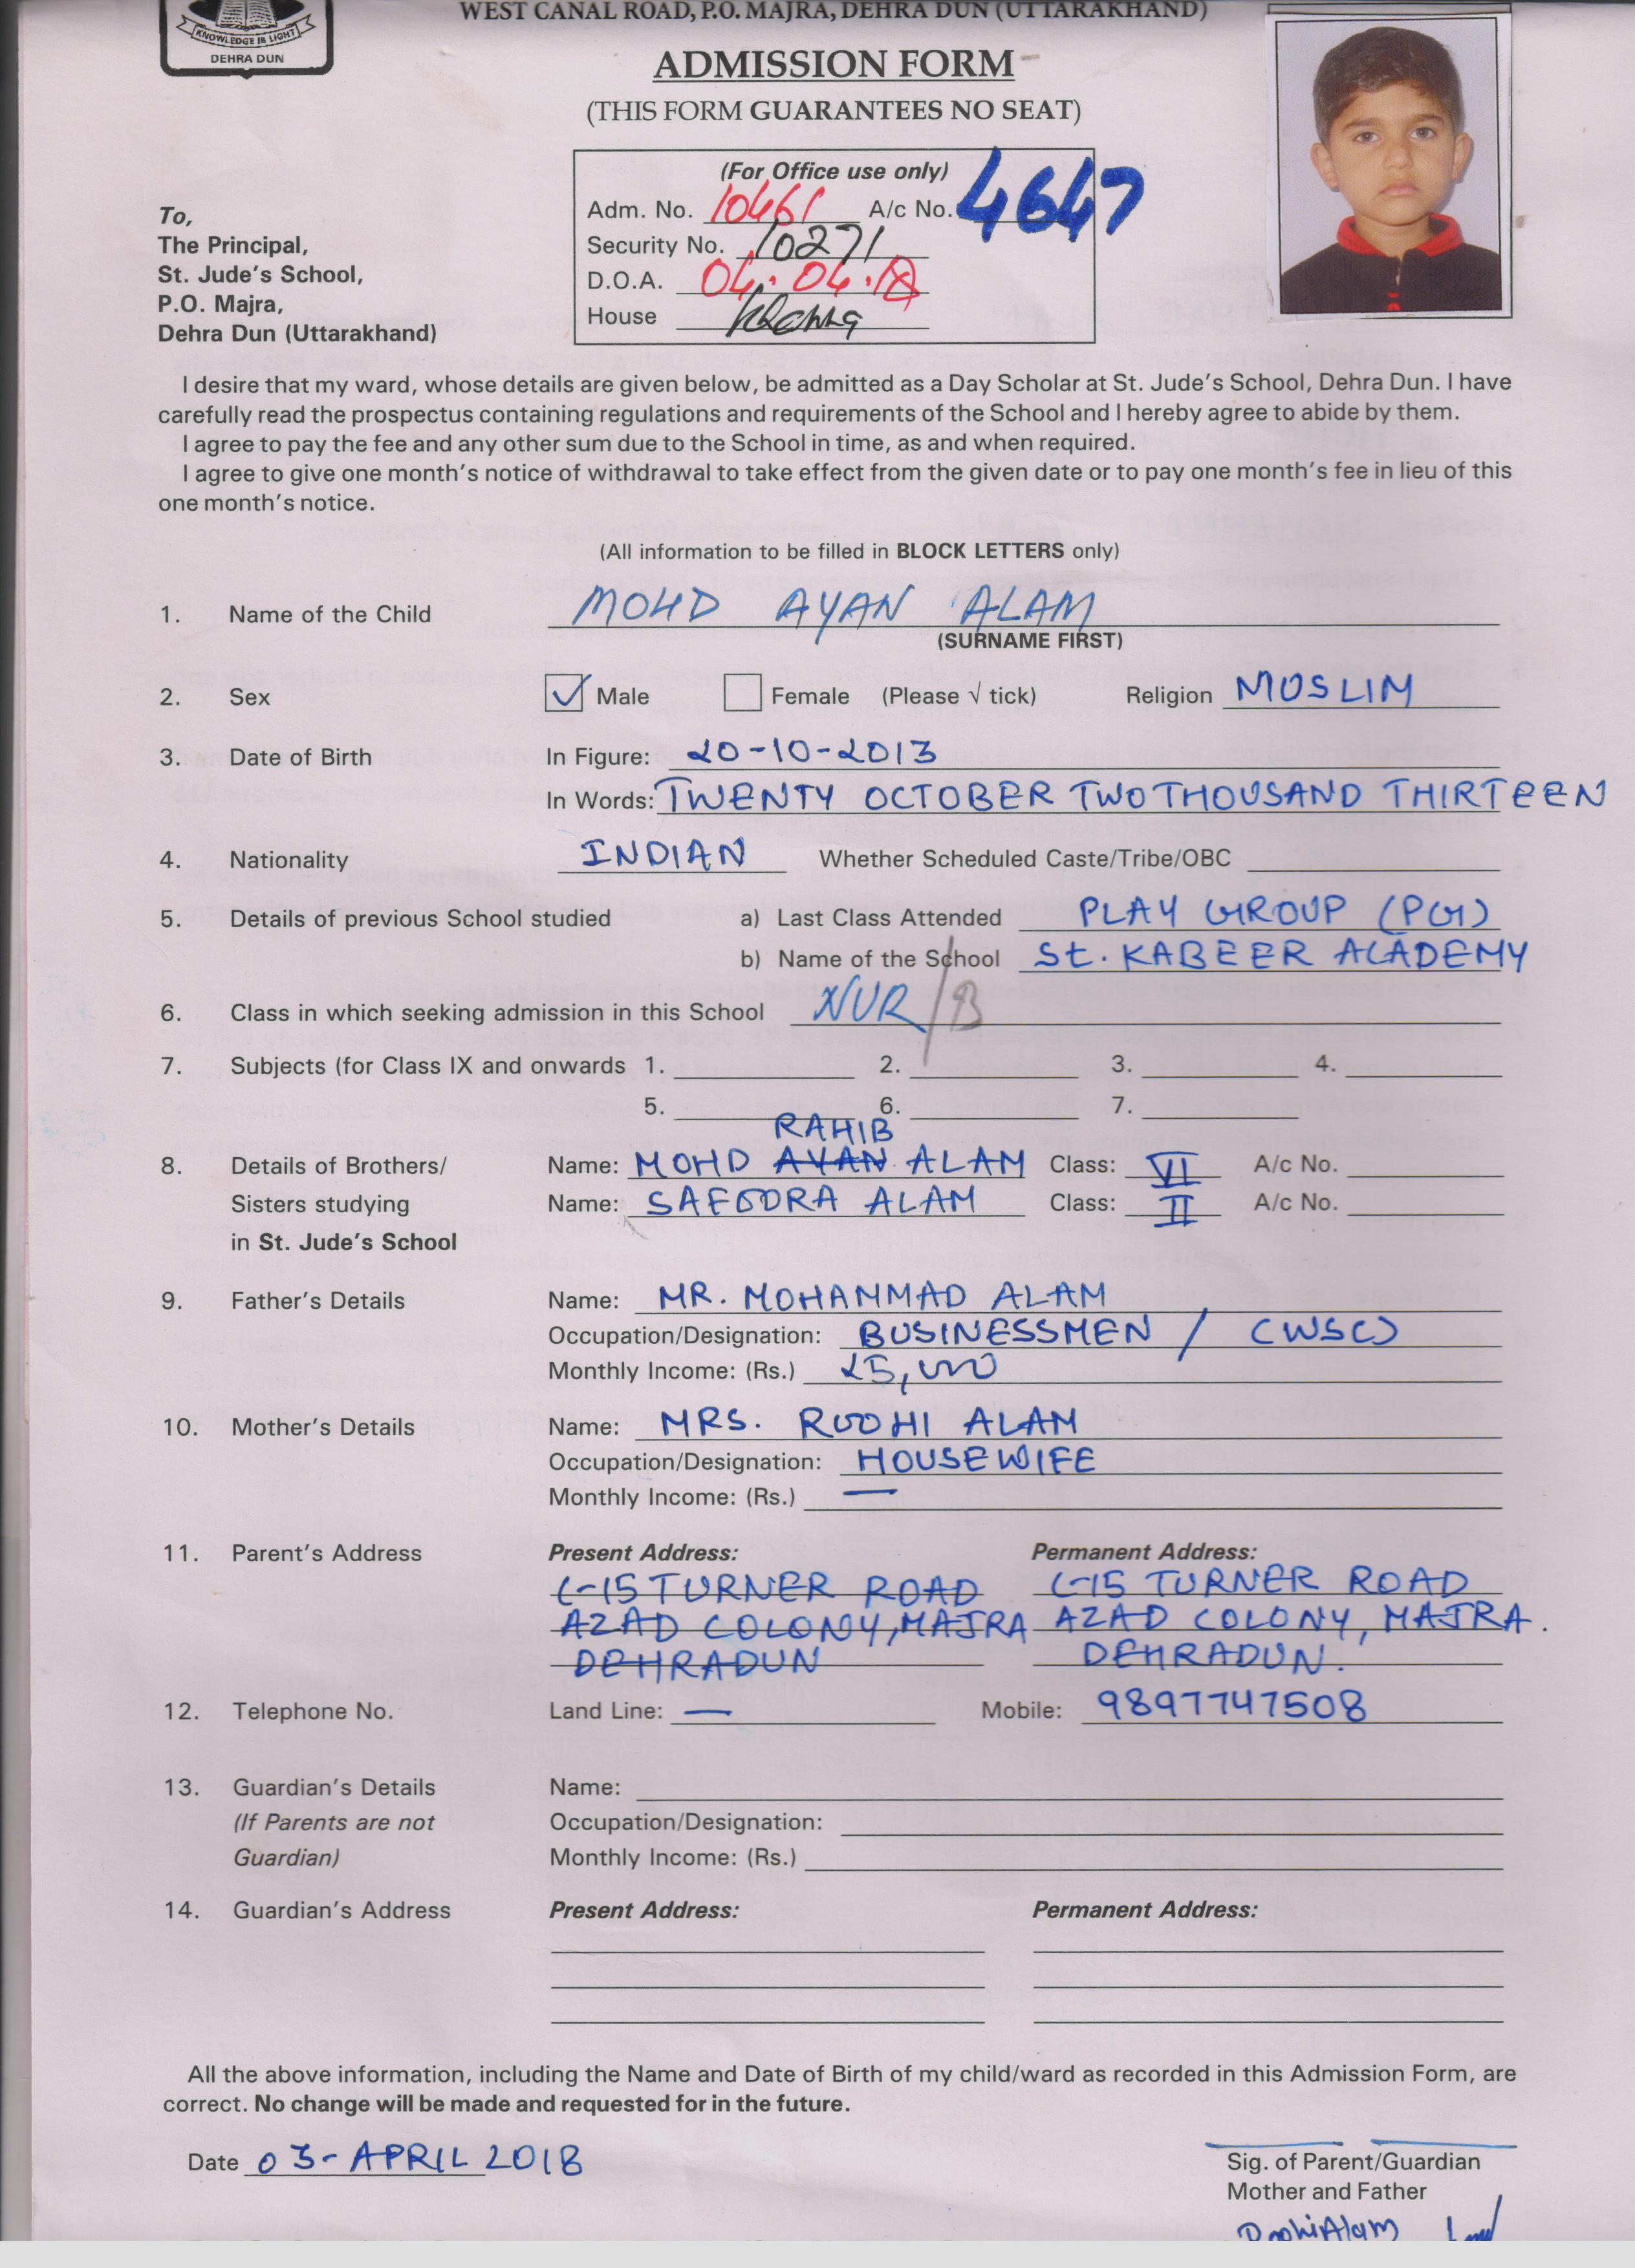 WEST CANAL ROAD, P.O. MAJRA, DEHRA DUN (UTTARAKHAND)
KNOWLEDGE IS LIGHT
DEHRA DUN
ADMISSION FORM
(THIS FORM GUARANTEES NO SEAT)
(For Office use only)
Adm. No. 10461 A/c No. 4647
Security No. 10271
D.O.A. 04.04.18
House
To,
The Principal,
St. Jude's School,
P.O. Majra,
Dehra Dun (Uttarakhand)
I desire that my ward, whose details are given below, be admitted as a Day Scholar at St. Jude's School, Dehra Dun. I have
carefully read the prospectus containing regulations and requirements of the School and I hereby agree to abide by them.
I agree to pay the fee and any other sum due to the School in time, as and when required.
I agree to give one month's notice of withdrawal to take effect from the given date or to pay one month's fee in lieu of this
one month's notice.
(All information to be filled in BLOCK LETTERS only)
1. Name of the Child MOHD AYAN ALAM
(SURNAME FIRST)
2. Sex Male Female (Please √ tick) Religion MUSLIM
3. Date of Birth In Figure: 20-10-2013
In Words: TWENTY OCTOBER TWO THOUSAND THIRTEEN
4. Nationality INDIAN Whether Scheduled Caste/Tribe/OBC
5. Details of previous School studied a) Last Class Attended PLAY GROUP (PG)
b) Name of the School St. KABEER ACADEMY
6. Class in which seeking admission in this School NUR/B
7. Subjects (for Class IX and onwards 1. 2. 3. 4.
5. 6. 7.
RAHIB
8. Details of Brothers/ Name: MOHD AYAN ALAM Class: VI A/c No.
Sisters studying Name: SAFOORA ALAM Class: II A/c No.
in St. Jude's School
9. Father's Details Name: MR. MOHAMMAD ALAM
Occupation/Designation: BUSINESSMEN / (WSC)
Monthly Income: (Rs.) 25,000
10. Mother's Details Name: MRS. ROOHI ALAM
Occupation/Designation: HOUSEWIFE
Monthly Income: (Rs.) —
11. Parent's Address Present Address: Permanent Address:
C-15 TURNER ROAD C-15 TURNER ROAD
AZAD COLONY, MAJRA AZAD COLONY, MAJRA.
DEHRADUN DEHRADUN.
12. Telephone No. Land Line: — Mobile: 9897747508
13. Guardian's Details Name:
(If Parents are not Occupation/Designation:
Guardian) Monthly Income: (Rs.)
14. Guardian's Address Present Address: Permanent Address:
All the above information, including the Name and Date of Birth of my child/ward as recorded in this Admission Form, are
correct. No change will be made and requested for in the future.
Date 03-APRIL 2018
Sig. of Parent/Guardian
Mother and Father
RoohiAlam